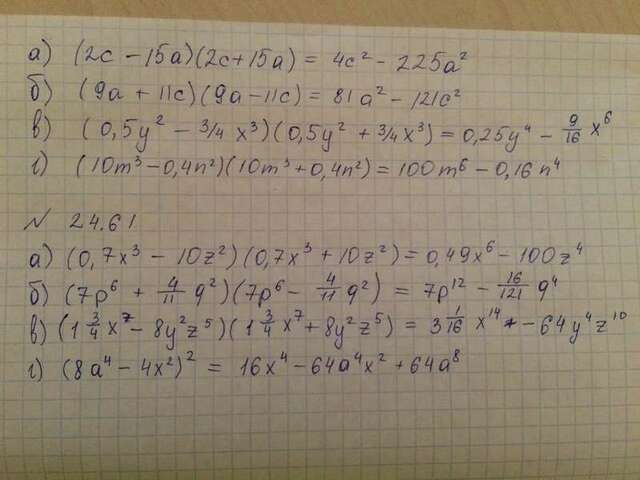 а) (2c - 15a)(2c + 15a) = 4c² - 225a²
б) (9a + 11c)(9a - 11c) = 81a² - 121c²
в) (0,5y² - 3/4 x³)(0,5y² + 3/4 x³) = 0,25y⁴ - 9/16 x⁶
г) (10m³ - 0,4n²)(10m³ + 0,4n²) = 100m⁶ - 0,16n⁴
№ 24.61
а) (0,7x³ - 10z²)(0,7x³ + 10z²) = 0,49x⁶ - 100z⁴
б) (7p⁶ + 4/11 q²)(7p⁶ - 4/11 q²) = 7p¹² - 16/121 q⁴
в) (1 3/4 x⁷ - 8y²z⁵)(1 3/4 x⁷ + 8y²z⁵) = 3 1/16 x¹⁴ - 64y⁴z¹⁰
г) (8a⁴ - 4x²)² = 16x⁴ - 64a⁴x² + 64a⁸